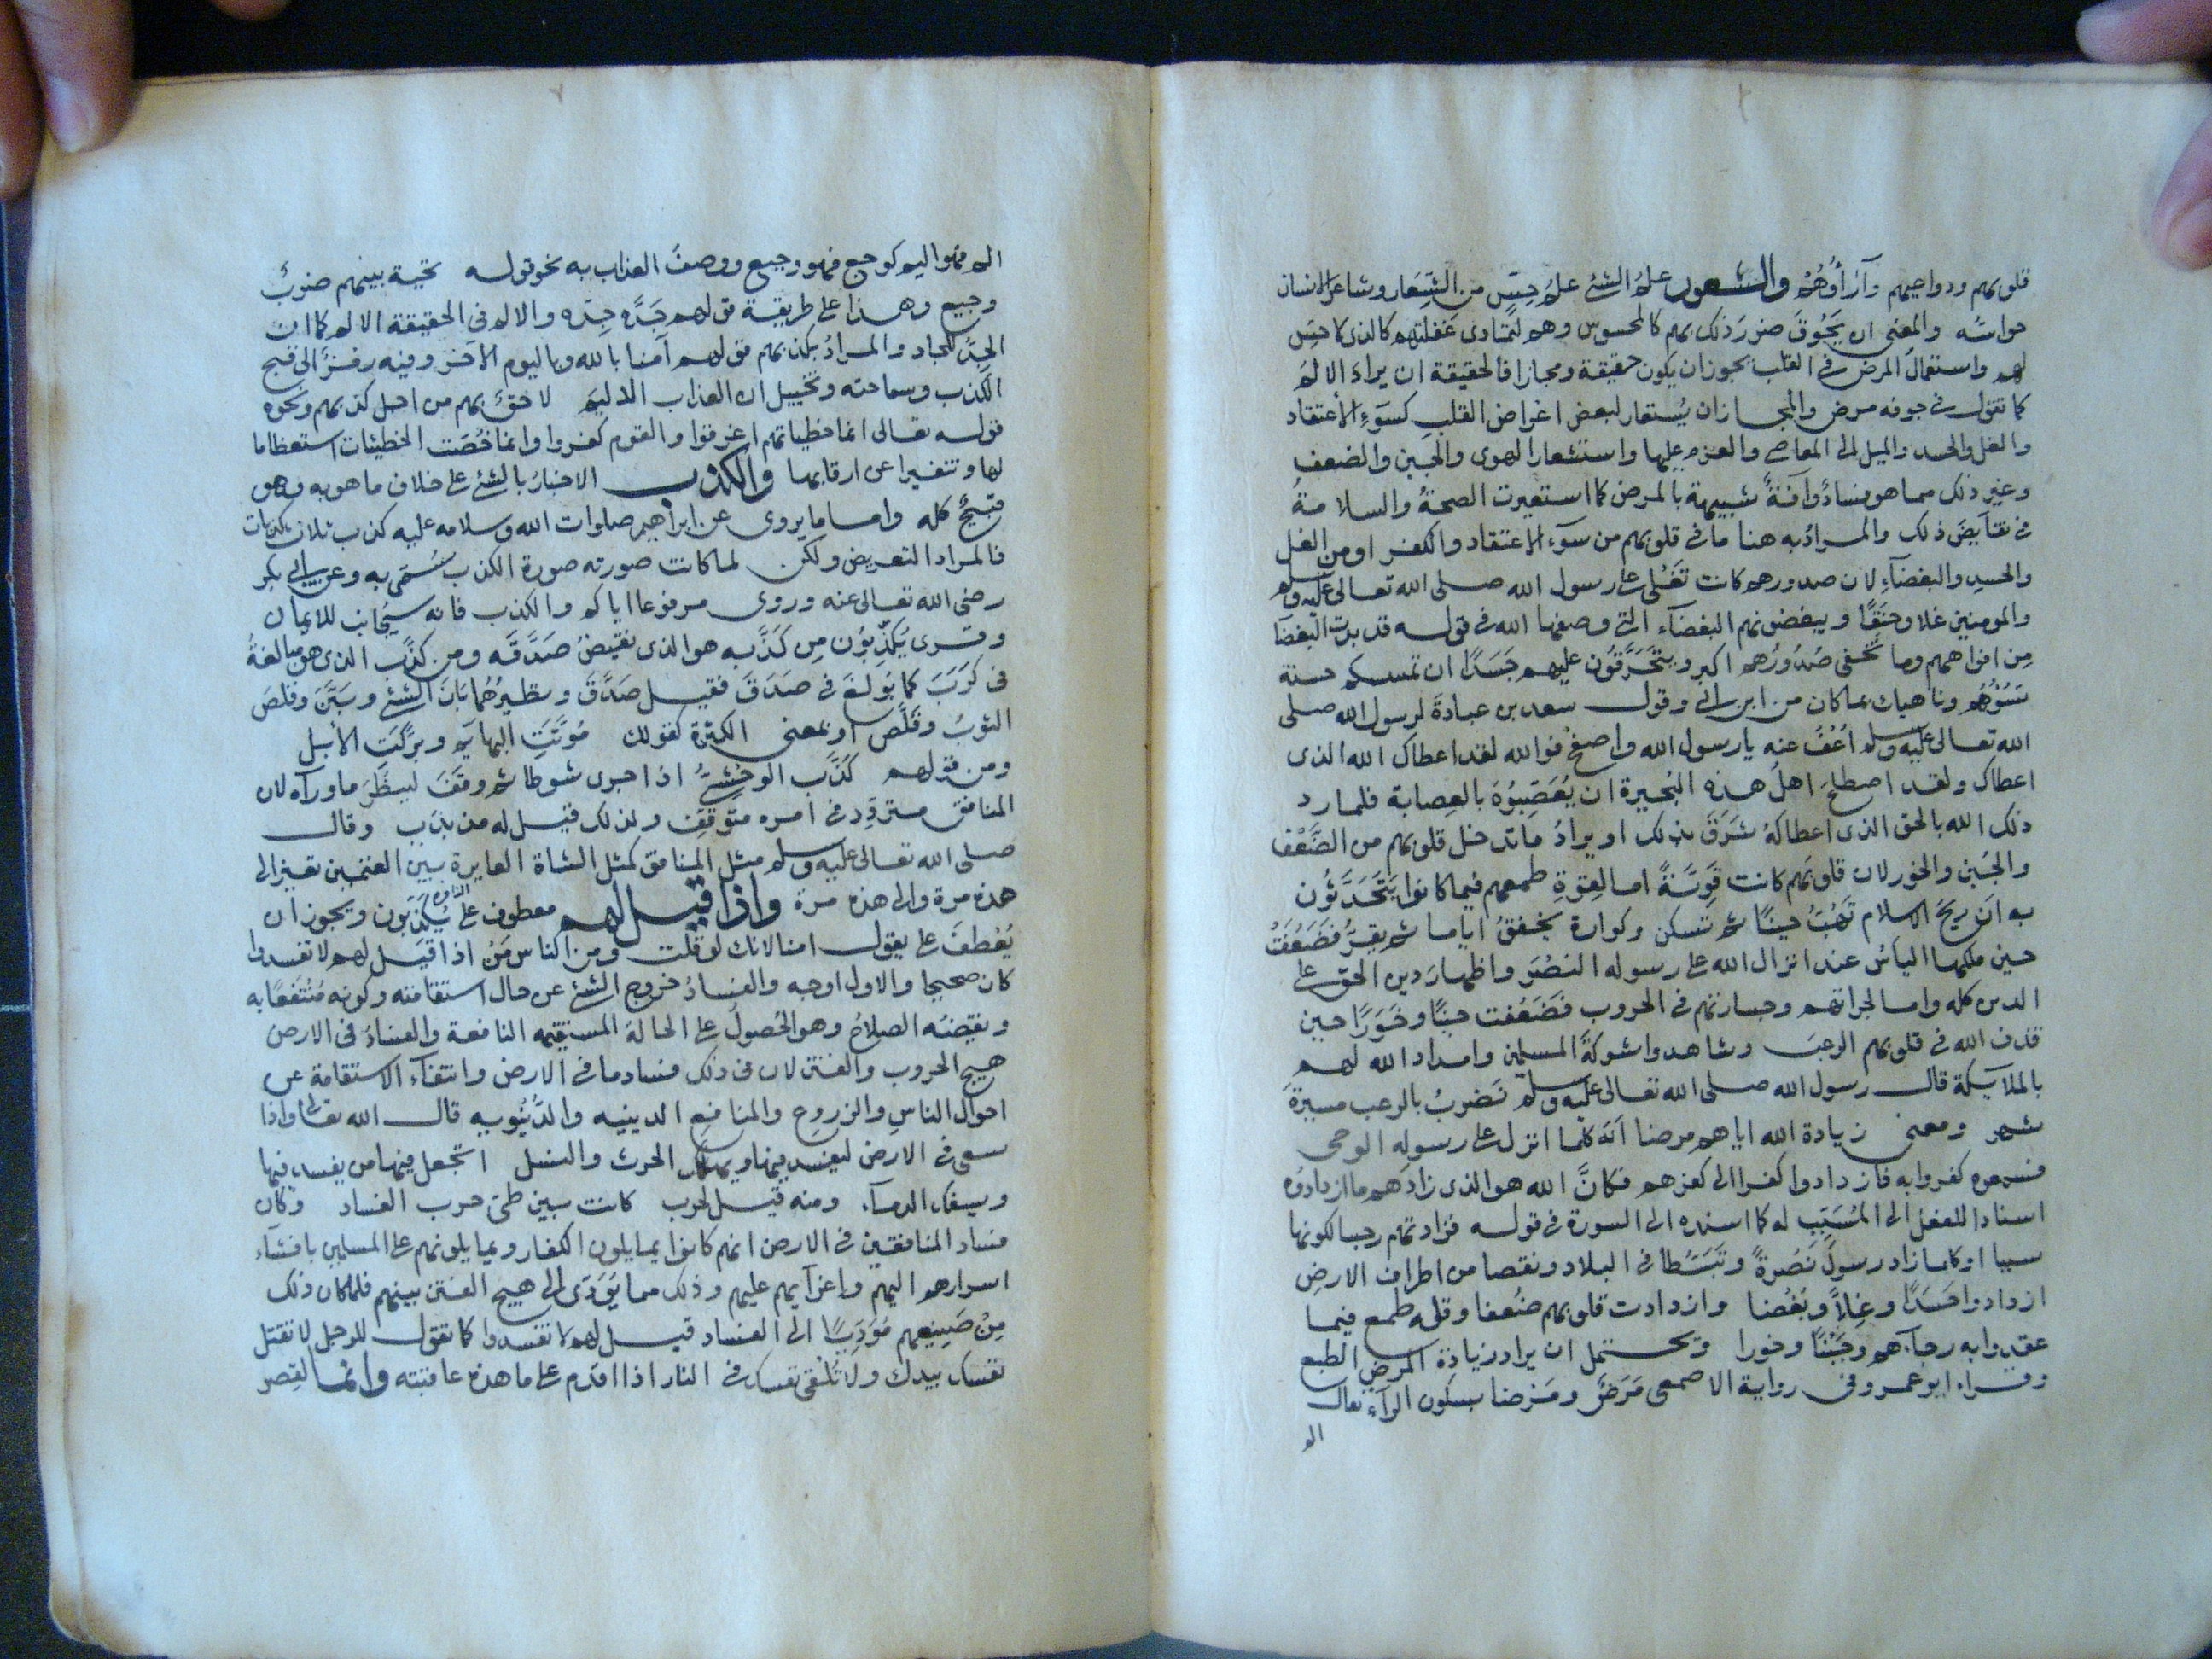 قلوبهم ودواعيهم وآراؤهم والشعور علم الشئ علم حس من الشعار ومشاعر الانسان
حواسه والمعنى ان يحوق ضرر ذلك بهم كالمحسوس وهم لتمادى غفلتهم كالذى لا حس
لهم واستعمال المرض فى القلب يجوز ان يكون حقيقة ومجازا فالحقيقة ان يراد الالم
كما تقول فى جوفه مرض والمجاز ان يستعار لبعض اعراض القلب كسوء الاعتقاد
والغل والحسد والميل الى المعاصى والعزم عليها واستشعار الهوى والجبن والضعف
وغير ذلك مما هو فساد وآفة شبيهة بالمرض كما استعيرت الصحة والسلامة
فى نقايض ذلك والمراد به هنا ما فى قلوبهم من سوء الاعتقاد والكفر او من الغل
والحسد والبغضاء لان صدورهم كانت تغلى على رسول الله صلى الله تعالى عليه وسلم
والمومنين غلا وحنقا ويبغضونهم البغضاء التى وصفها الله فى قوله قد بدت البغضا
من افواههم وما تخفى صدورهم اكبر ويتحرقون عليهم حسدا ان تمسسكم حسنة
تسؤهم وناهيك بما كان من ابن ابى وقول سعد بن عبادة لرسول الله صلى
الله تعالى عليه وسلم اعف عنه يا رسول الله واصفح فوالله لقد اعطاك الله الذى
اعطاك ولقد اصطلح اهل هذه البحيرة ان يعصبوه بالعصابة فلما رد
ذلك الله بالحق الذى اعطاكه شرق بذلك او يراد ما تداخل قلوبهم من الضعف
والجبن والخور لان قلوبهم كانت قوية اما لقوة طمعهم فيما كانوا يتحدثون
به ان ريح الاسلام تهب حينا ثم تسكن ولواءه يخفق اياما ثم يقر فضعفت
حين ملكها الياس عند انزال الله على رسوله النصر واظهار دين الحق على
الدين كله واما لجراتهم وجسارتهم فى الحروب فضعفت جبنا وخورا حين
قذف الله فى قلوبهم الرعب وشاهدوا شوكة المسلمين وامداد الله لهم
بالملايكة قال رسول الله صلى الله تعالى عليه وسلم نصرت بالرعب مسيرة
شهر ومعنى زيادة الله اياهم مرضا انه كلما انزل على رسوله الوحى
فسمعوه كفروا به فازدادوا كفرا الى كفرهم فكان الله هو الذى زادهم ما ازدادوه
اسنادا للفعل الى المسبب له كما اسنده الى السورة فى قوله فزادتهم رجسا لكونها
سببا او كلما زاد رسوله نصرة وتبسطا فى البلاد ونقصا من اطراف الارض
ازدادوا حسدا وغلا وبغضا وازدادت قلوبهم ضعفا وقلة طمع فيما
عقدوا به رجاءهم وجبنا وخورا ويحتمل ان يراد بزيادة المرض الطبع
وقراء ابو عمرو فى رواية الاصمعى مرض ومرضا بسكون الراء يقال
الم
الم فهو اليم كوجع فهو وجيع ووصف العذاب به نحو قوله تحية بينهم ضرب
وجيع وهذا على طريقة قولهم جد جده والالم فى الحقيقة للالم كما ان
الجد للجاد والمراد بكذبهم قولهم آمنا بالله وباليوم الآخر وفيه رمز الى قبح
الكذب وسماجته وتخييل ان العذاب الاليم لاحق بهم من اجل كذبهم ونحوه
قوله تعالى مما خطياتهم اغرقوا والقوم كفروا وانما خصت الخطيئات استعظاما
لها وتنفيرا عن ارتكابها والكذب الاخبار بالشئ على خلاف ما هو به وهو
قبيح كله واما ما يروى عن ابراهيم صلوات الله وسلامه عليه كذب ثلاث كذبات
فالمراد التعريض ولكن لما كانت صورته صورة الكذب سمى به وعن ابى بكر
رضى الله تعالى عنه وروى مرفوعا اياكم والكذب فانه مجانب للايمان
وقرى يكذبون من كذبه هو الذى نقيض صدقه ومن كذب الذى هو مبالغة
فى كذب كما بولغ فى صدق فقيل صدق ونظيرهما بان الشئ وبين وقلص
الثوب وقلص او بمعنى الكثرة كقولك موتت البهايم وبركت الابل
ومن قولهم كذب الوحشى اذا جرى شوطا ثم وقف لينظر ما وراه لان
المنافق متردد فى امره متوقف ولذلك قيل له مذبذب وقال
صلى الله تعالى عليه وسلم مثل المنافق كمثل الشاة العايرة بين الغنمين تعير الى
هذه مرة والى هذه مرة واذا قيل لهم معطوف على يكذبون ويجوز ان
يعطف على يقول امنا لانك لو قلت ومن الناس من اذا قيل لهم لا تفسدوا
كان صحيحا والاول اوجه والفساد خروج الشئ عن حال استقامته وكونه منتفعا به
ونقيضه الصلاح وهو الحصول على الحالة المستقيمة النافعة والفساد فى الارض
هيج الحروب والفتن لان فى ذلك فساد ما فى الارض وانتفاء الاستقامة عن
احوال الناس والزروع والمنافع الدينيه والدنيويه قال الله تعالى واذا
سعى فى الارض ليفسد فيها ويهلك الحرث والنسل اتجعل فيها من يفسد فيها
ويسفك الدماء ومنه قيل لحرب كانت بين طى حرب الفساد وكان
فساد المنافقين فى الارض انهم كانوا يمايلون الكفار ويمايلونهم على المسلمين بافشاء
اسرارهم اليهم واغرايهم عليهم وذلك مما يودى الى هيج الفتن بينهم فلما كان ذلك
من صنيعهم موديا الى الفساد قيل لهم لا تفسدوا كما تقول للرجل لا تقتل
نفسك بيدك ولا تلق نفسك فى النار اذا اقدم على ما هذه عاقبته وانما لقصر